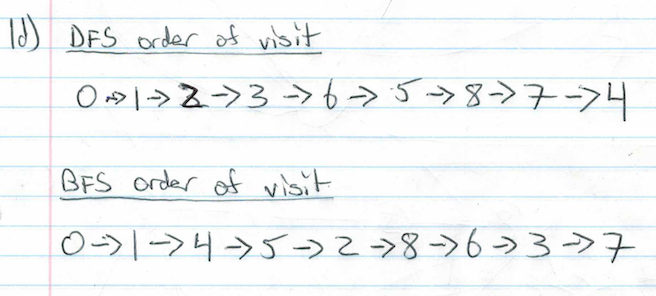 1d) DFS order of visit
0→1→2→3→6→5→8→7→4
BFS order of visit
0→1→4→5→2→8→6→3→7